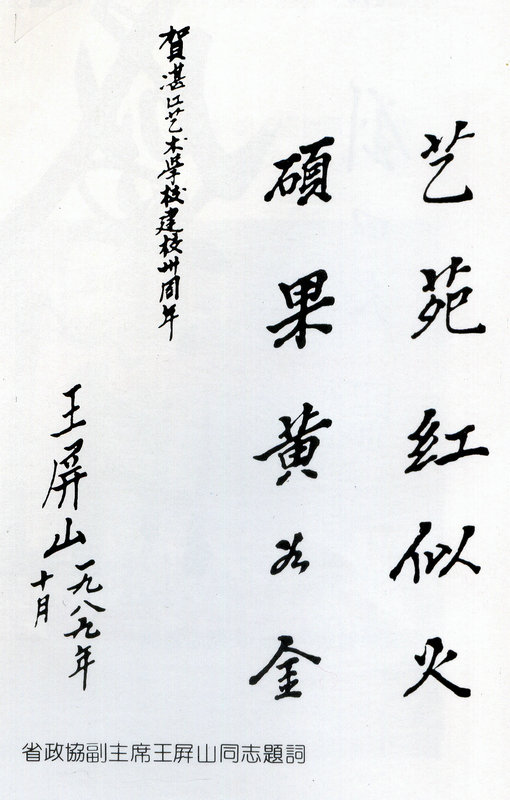 艺苑红似火
碩果黄如金
賀湛江艺术學校建校卅周年
王屏山
一九八九年
十月
省政協副主席王屏山同志題詞